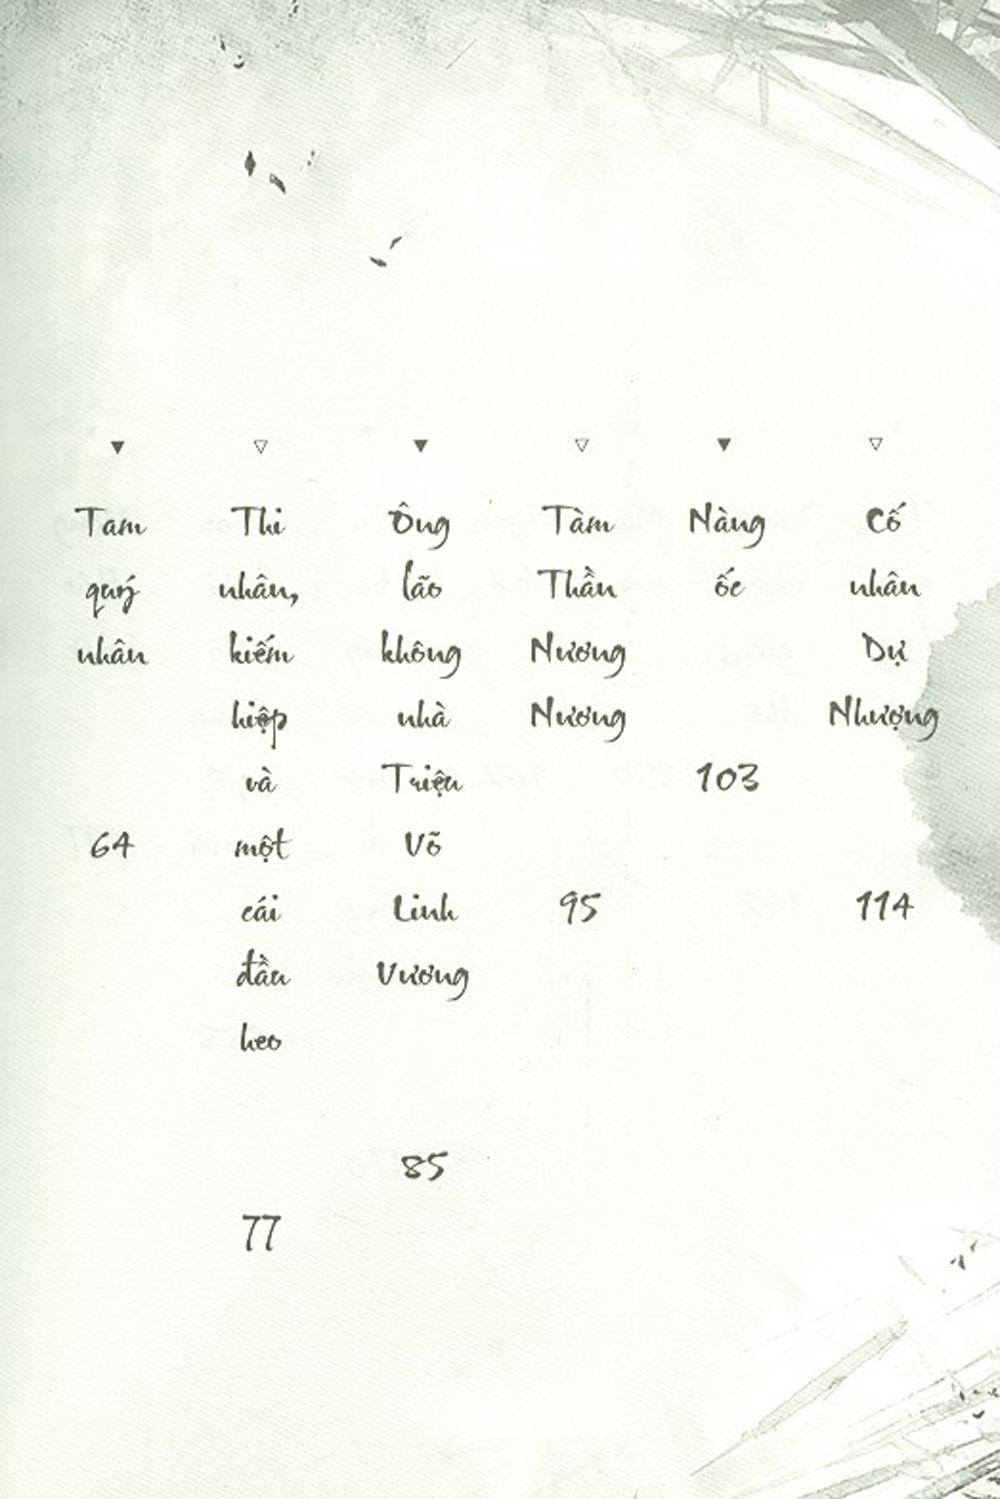 ▼ Tam quý nhân 64
▽ Thi nhân, kiếm hiệp và một cái đầu heo 77
▼ Ông lão không nhà Triệu Võ Linh Vương 85
▽ Tàm Thần Nương Nương 95
▼ Nàng ốc 103
▽ Cố nhân Dự Nhượng 114